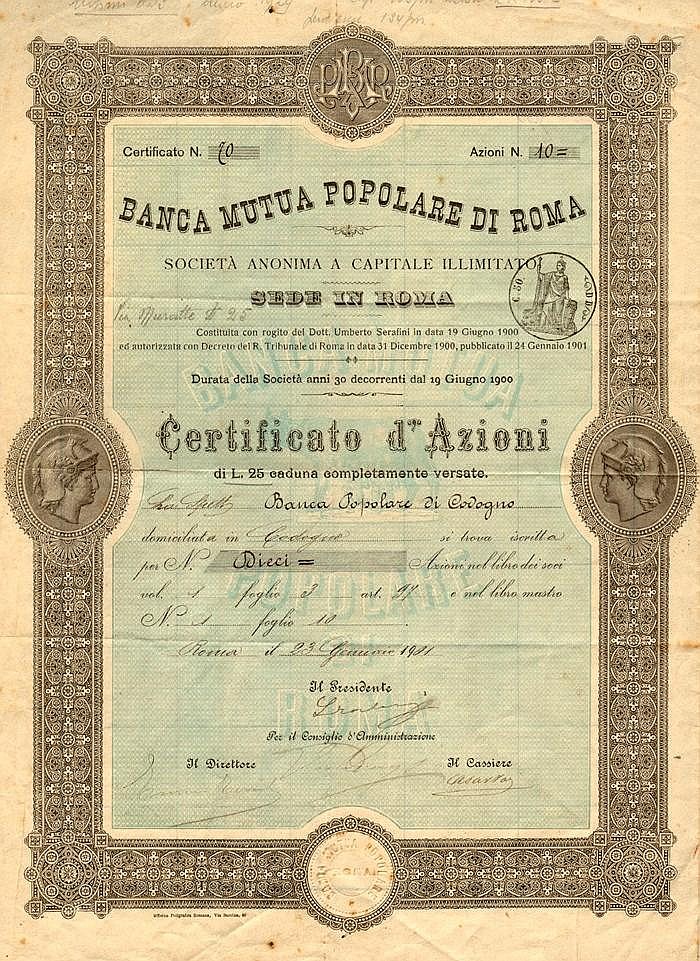 Certificato N. 20
Azioni N. 10 =
BANCA MUTUA POPOLARE DI ROMA
SOCIETÀ ANONIMA A CAPITALE ILLIMITATO
C. 50
SEDE IN ROMA
Via Muratte № 25
Costituita con rogito del Dott. Umberto Serafini in data 19 Giugno 1900
ed autorizzata con Decreto del R. Tribunale di Roma in data 31 Dicembre 1900, pubblicato il 24 Gennaio 1901
Durata della Società anni 30 decorrenti dal 19 Giugno 1900
Certificato d'Azioni
di L. 25 caduna completamente versate.
Banca Popolare di Codogno
domiciliata in Codogno si trova iscritta
per N. Dieci = Azioni nel libro dei soci
vol. 1 foglio 3 art. 27 e nel libro mastro
N. 1 foglio 10
Roma il 23 Gennaio 1911
Il Presidente
Per il Consiglio d'Amministrazione
Il Direttore
Il Cassiere
BANCA MUTUA
POPOLARE
DI
ROMA
Officina Poligrafica Romana, Via